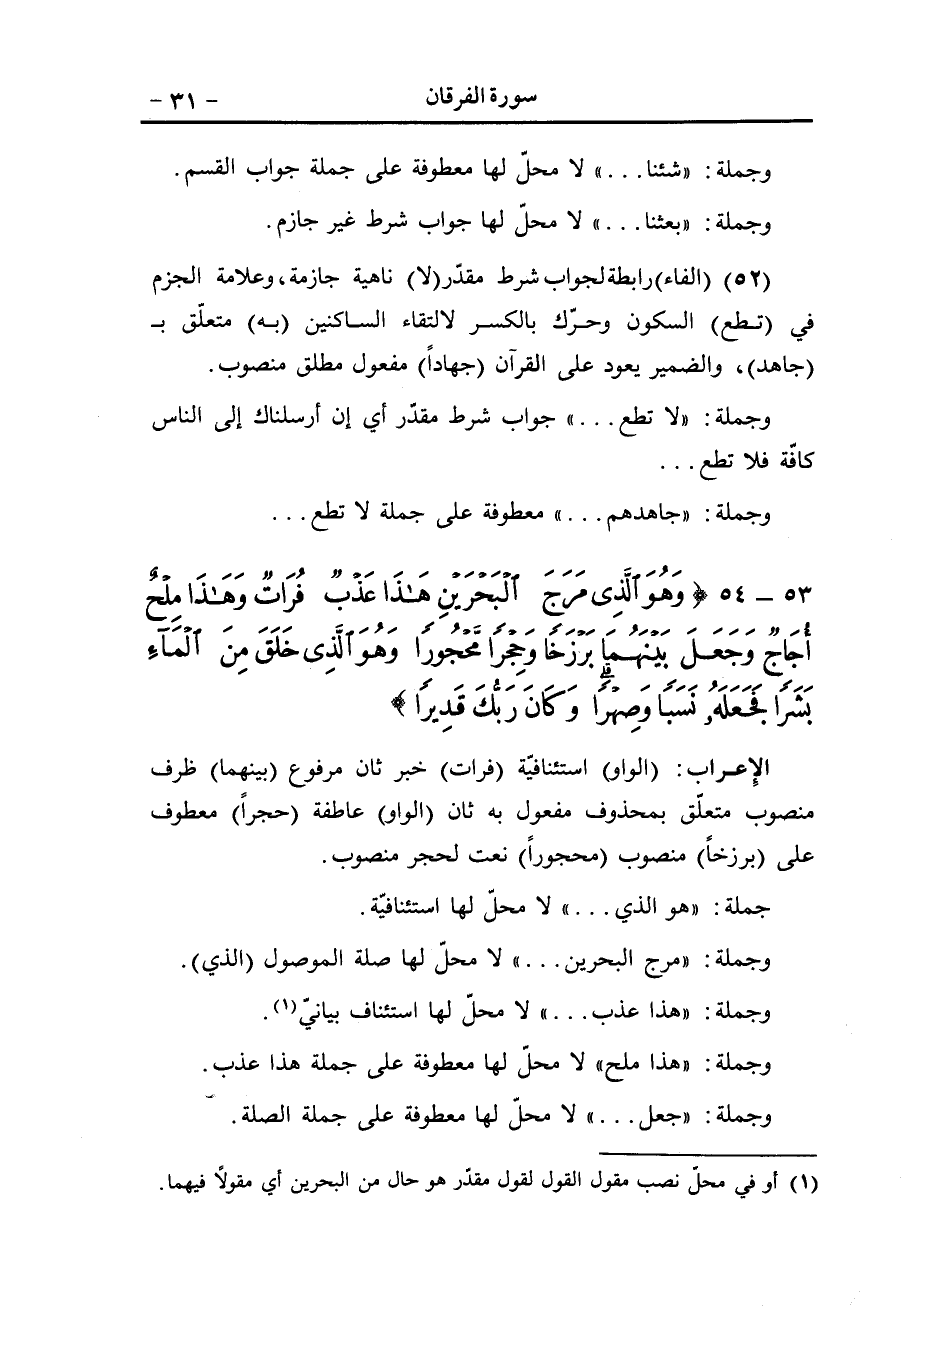 سورة الفرقان - ٣١ -
وجملة : «شئنا . . .» لا محلّ لها معطوفة على جملة جواب القسم .
وجملة : «بعثنا . . .» لا محلّ لها جواب شرط غير جازم .
(٥٢) (الفاء) رابطة لجواب شرط مقدّر (لا) ناهية جازمة ، وعلامة الجزم
في (تـطع) السكون وحـرّك بالكسـر لالتقاء السـاكنين (بـه) متعلّق بـ
(جاهد) ، والضمير يعود على القرآن (جهاداً) مفعول مطلق منصوب .
وجملة : «لا تطع . . .» جواب شرط مقدّر أي إن أرسلناك إلى الناس
كافّة فلا تطع . . .
وجملة : «جاهدهم . . .» معطوفة على جملة لا تطع . . .
٥٣ - ٥٤ ﴿ وَهُوَ ٱلَّذِى مَرَجَ ٱلْبَحْرَيْنِ هَـٰذَا عَذْبٌ فُرَاتٌ وَهَـٰذَا مِلْحٌ
أُجَاجٌ وَجَعَلَ بَيْنَهُمَا بَرْزَخًا وَحِجْرًا مَّحْجُورًا وَهُوَ ٱلَّذِى خَلَقَ مِنَ ٱلْمَآءِ
بَشَرًا فَجَعَلَهُۥ نَسَبًا وَصِهْرًا ۗ وَكَانَ رَبُّكَ قَدِيرًا ﴾
الإعـراب : (الواو) استئنافيّة (فرات) خبر ثان مرفوع (بينهما) ظرف
منصوب متعلّق بمحذوف مفعول به ثان (الواو) عاطفة (حجراً) معطوف
على (برزخاً) منصوب (محجوراً) نعت لحجر منصوب .
جملة : «هو الذي . . .» لا محلّ لها استئنافيّة .
وجملة : «مرج البحرين . . .» لا محلّ لها صلة الموصول (الذي) .
وجملة : «هذا عذب . . .» لا محلّ لها استئناف بيانيّ (١) .
وجملة : «هذا ملح» لا محلّ لها معطوفة على جملة هذا عذب .
وجملة : «جعل . . .» لا محلّ لها معطوفة على جملة الصلة .
(١) أو في محلّ نصب مقول القول لقول مقدّر هو حال من البحرين أي مقولاً فيهما .